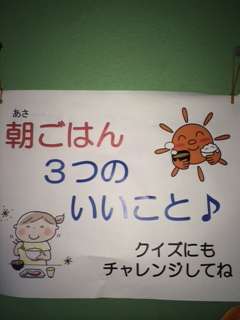 あさ
朝ごはん
３つの
いいこと♪
クイズにも
チャレンジしてね